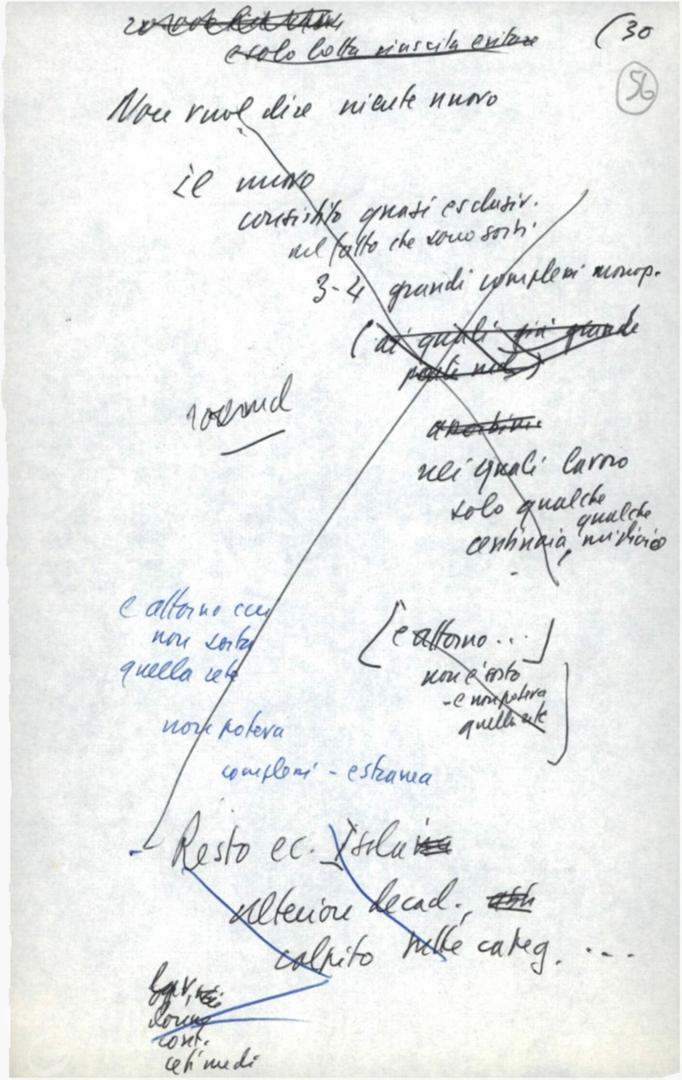 e solo lotta riuscita evitare
(30
56
Non vuol dire niente nuovo
il nuovo
consistito quasi esclusiv.
nel fatto che sono sorti
3-4 grandi complessi monop.
(ai quali più grande
nei quali lavoro
solo qualche
centinaia, qualche migliaio
e attorno cui
non sorta
quella rete
[e attorno...]
non è sorto
- e non poteva
quella rete
non poteva
complessi - estranea
Resto ec. Isola
ulteriore decad.,
colpito tutte categ. ....
lav.,
cont.
ceti medi